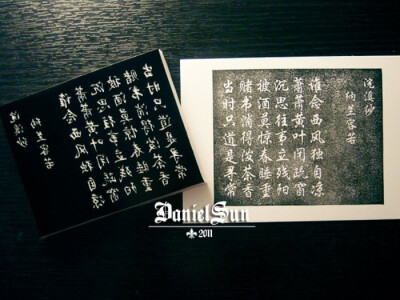 浣溪沙
纳兰容若
谁念西风独自凉
萧萧黄叶闭疏窗
沉思往事立残阳
被酒莫惊春睡重
赌书消得泼茶香
当时只道是寻常
浣溪沙
纳兰容若
谁念西风独自凉
萧萧黄叶闭疏窗
沉思往事立残阳
被酒莫惊春睡重
赌书消得泼茶香
当时只道是寻常
DanielSun
2011